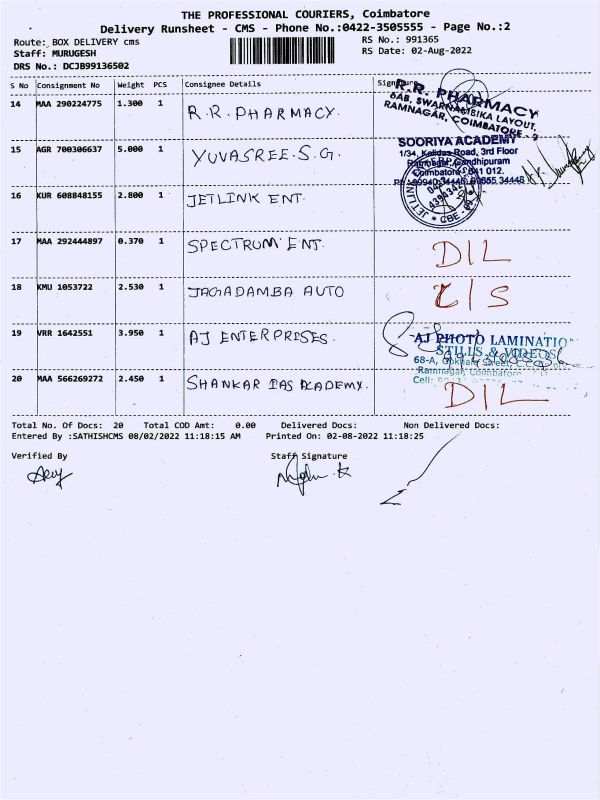 THE PROFESSIONAL COURIERS, Coimbatore
Delivery Runsheet - CMS - Phone No.:0422-3505555 - Page No.:2
Route: BOX DELIVERY cms RS No.: 991365
Staff: MURUGESH RS Date: 02-Aug-2022
DRS No.: DCJB99136502
S No Consignment No Weight PCS Consignee Details Signature
14 MAA 290224775 1.300 1 R.R. PHARMACY.
R.R. PHARMACY
6AB, SWARNAMBIKA LAYOUT,
RAMNAGAR, COIMBATORE - 9
15 AGR 700306637 5.000 1 YUVASREE.S.G.
SOORIYA ACADEMY
1/34, Kalidas Road, 3rd Floor
Ramnagar, Gandhipuram
Coimbatore - 641 012.
16 KUR 608848155 2.800 1 JETLINK ENT.
17 MAA 292444897 0.370 1 SPECTRUM ENT.
D|L
18 KMU 1053722 2.530 1 JAGADAMBA AUTO
C/S
19 VRR 1642551 3.950 1 AJ ENTERPRISES.
AJ PHOTO LAMINATION
STILLS & VIDEOS
68-A, Gokhale Street,
Ramnagar, Coimbatore
Cell:
20 MAA 566269272 2.450 1 SHANKAR IAS ACADEMY.
D|L
Total No. Of Docs: 20 Total COD Amt: 0.00 Delivered Docs: Non Delivered Docs:
Entered By :SATHISHCMS 08/02/2022 11:18:15 AM Printed On: 02-08-2022 11:18:25
Verified By Staff Signature